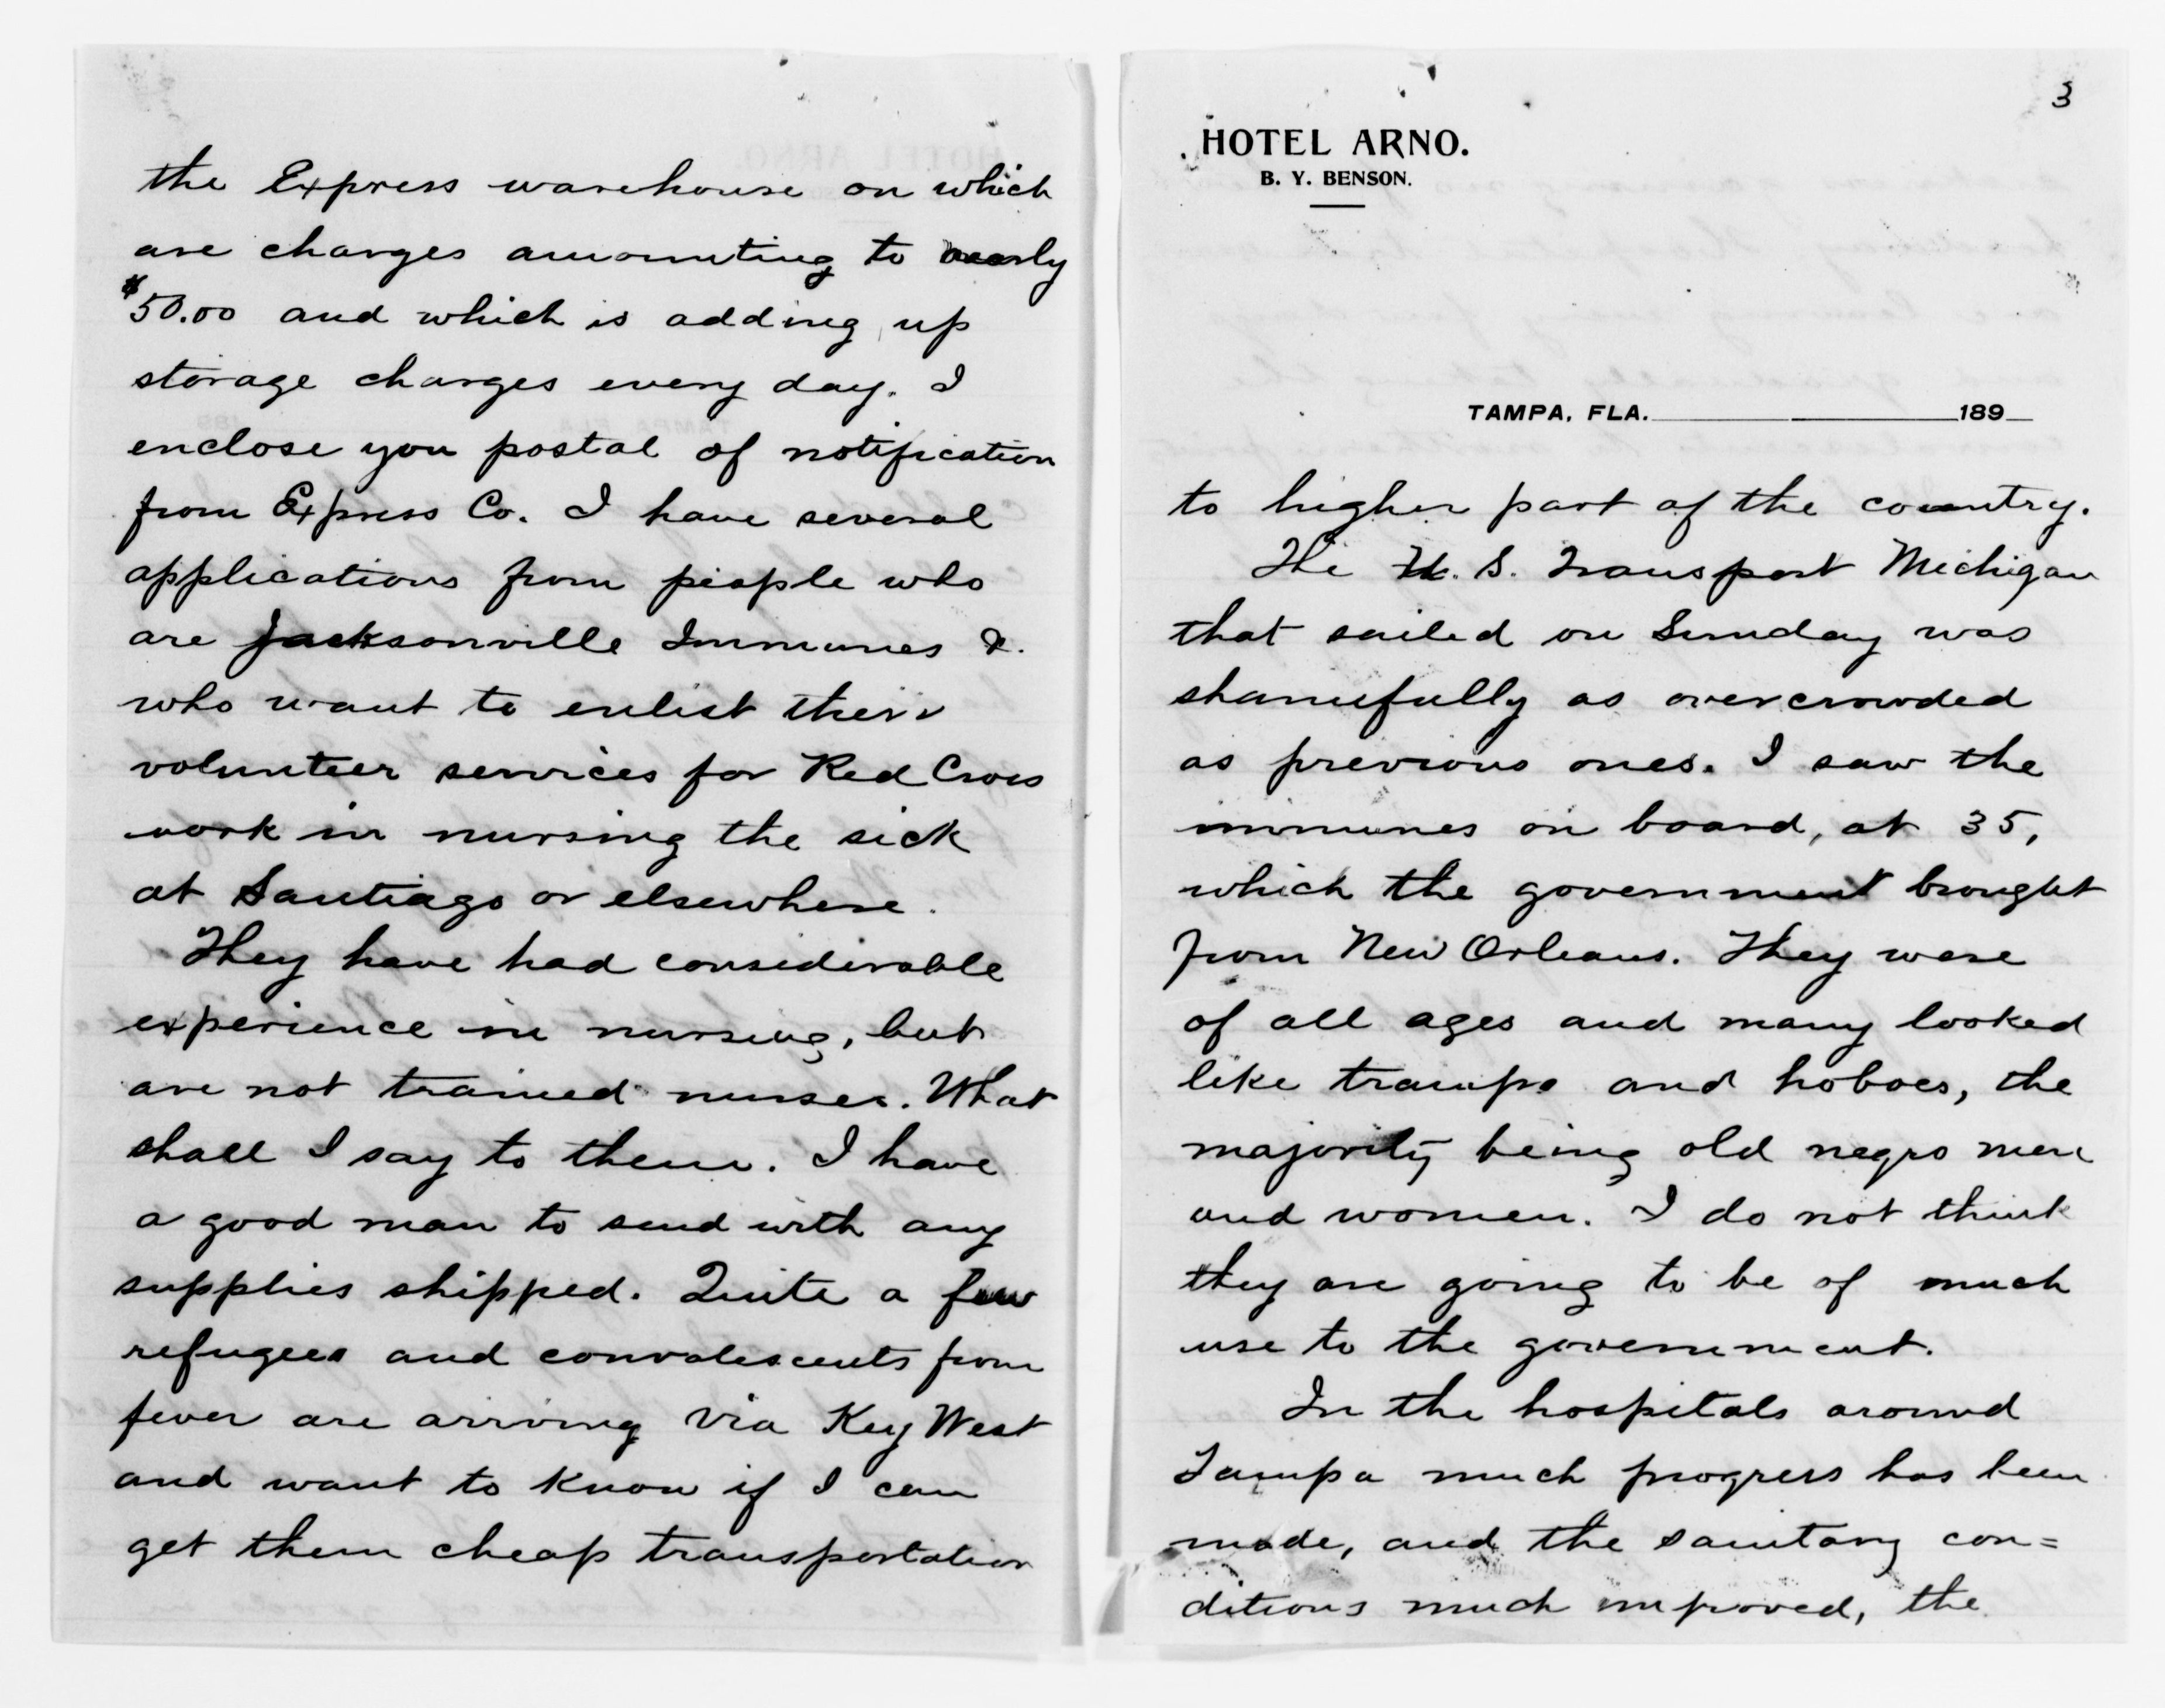 the Express warehouse on which
are charges amounting to nearly
$50.00 and which is adding up
storage charges every day. I
enclose you postal of notification
from Express Co. I have several
applications from people who
are Jacksonville Immunes &.
who want to enlist their
volunteer services for Red Cross
work in nursing the sick
at Santiago or elsewhere.
They have had considerable
experience in nursing, but
are not trained nurses. What
shall I say to them. I have
a good man to send with any
supplies shipped. Quite a few
refugees and convalescents from
fever are arriving via Key West
and want to know if I can
get them cheap transportation
3
HOTEL ARNO.
B. Y. BENSON.
TAMPA, FLA. 189
to higher part of the country.
The U. S. Transport Michigan
that sailed on Sunday was
shamefully as overcrowded
as previous ones. I saw the
immunes on board, at 35,
which the government brought
from New Orleans. They were
of all ages and many looked
like tramps and hoboes, the
majority being old negro men
and women. I do not think
they are going to be of much
use to the government.
In the hospitals around
Tampa much progress has been
made, and the sanitary con=
ditions much improved, the